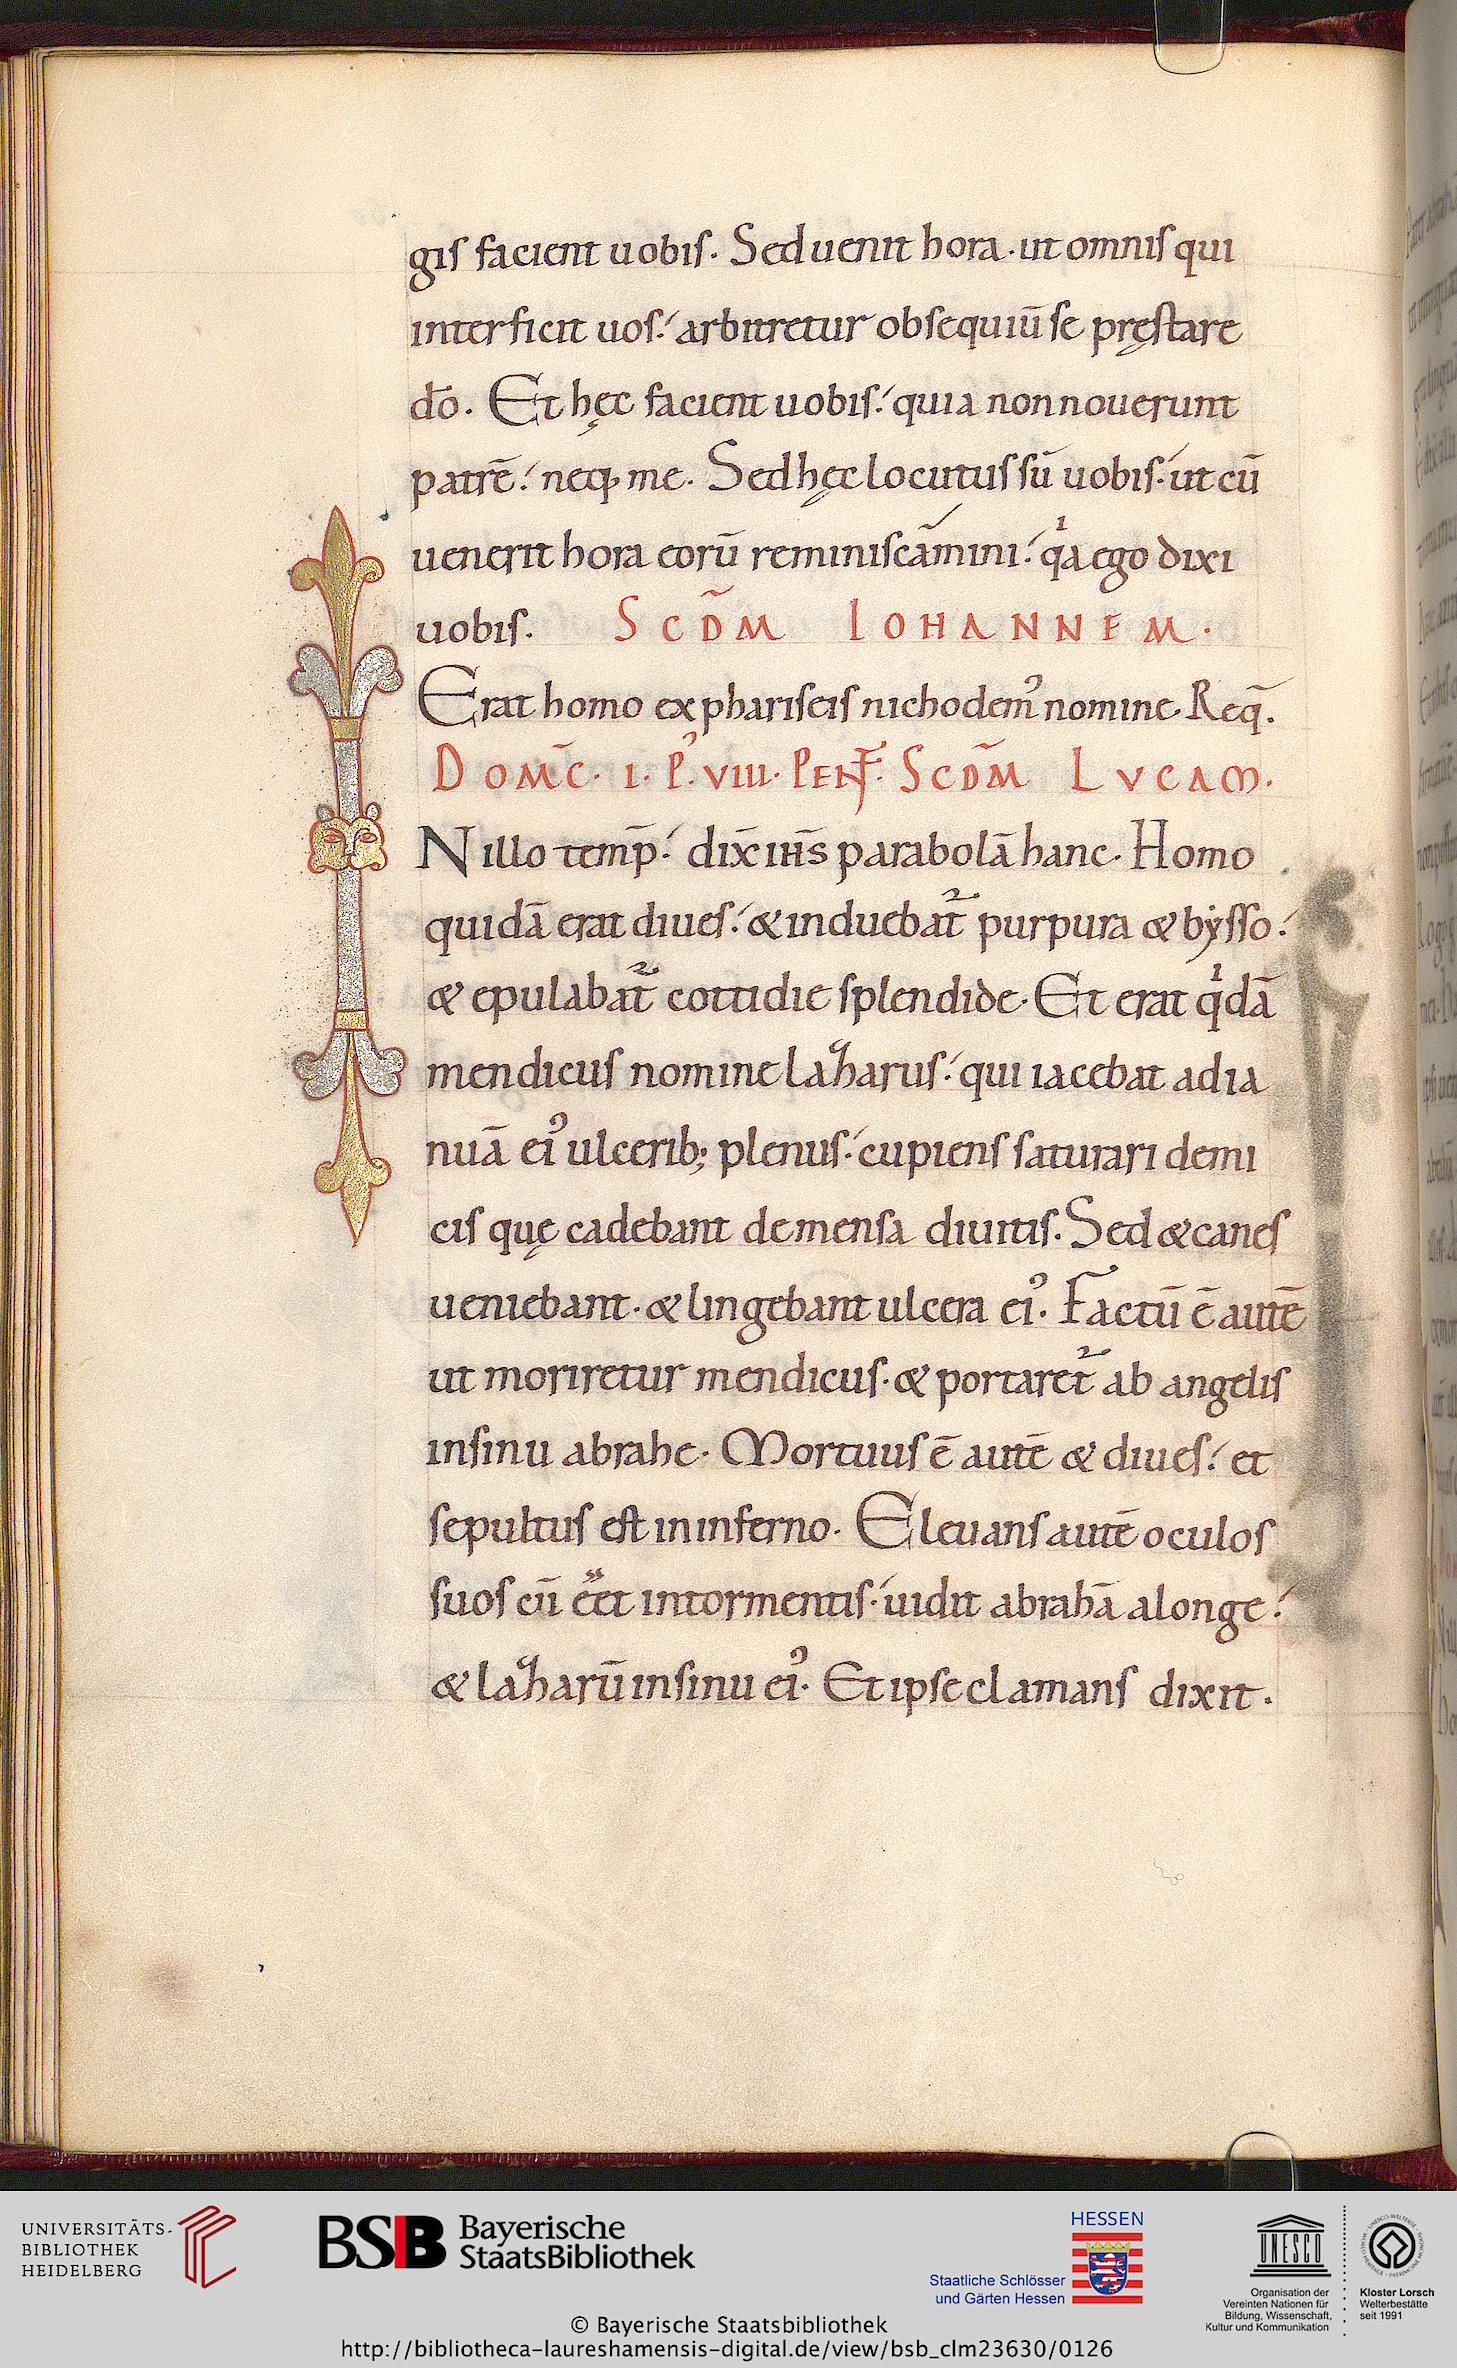 gis facient uobis. Sed uenit hora. ut omnis qui
interficit uos. arbitretur obsequiū se pręstare
dō. Et hęc facient uobis. quia non nouerunt
patrē. neq; me. Sed hęc locutus sū uobis. ut cū
uenerit hora eorū reminiscāmini. qͥa ego dixi
uobis. SCD̄M IOHANNEM.
Erat homo ex phariseis nichodemꝰ nomine. Req̄.
DOM̄C. I. P̓. VIII. PENT̄. SCD̄M LVCAM.
IN illo temp̄. dix̄ ih̄s parabolā hanc. Homo
quidā erat diues. & induebat᷑ purpura & bẏsso.
& epulabat᷑ cottidie splendide. Et erat qͥdā
mendicus nomine lazharus. qui iacebat ad ia
nuā eiꝰ ulcerib; plenus. cupiens saturari de mi
cis quę cadebant de mensa diuitis. Sed & canes
ueniebant. & lingebant ulcera eiꝰ. Factū ē autē
ut moriretur mendicus. & portaret᷑ ab angelis
in sinu abrahe. Mortuus ē autē & diues. et
sepultus est in inferno. Eleuans autē oculos
suos cū e̋et in tormentis. uidit abrahā a longe.
& lazharū in sinu eiꝰ. Et ipse clamans dixit.
UNIVERSITÄTS-
BIBLIOTHEK
HEIDELBERG
BSB Bayerische
StaatsBibliothek
HESSEN
Staatliche Schlösser
und Gärten Hessen
UNESCO
Organisation der
Vereinten Nationen für
Bildung, Wissenschaft,
Kultur und Kommunikation
Kloster Lorsch
Welterbestätte
seit 1991
© Bayerische Staatsbibliothek
http://bibliotheca-laureshamensis-digital.de/view/bsb_clm23630/0126